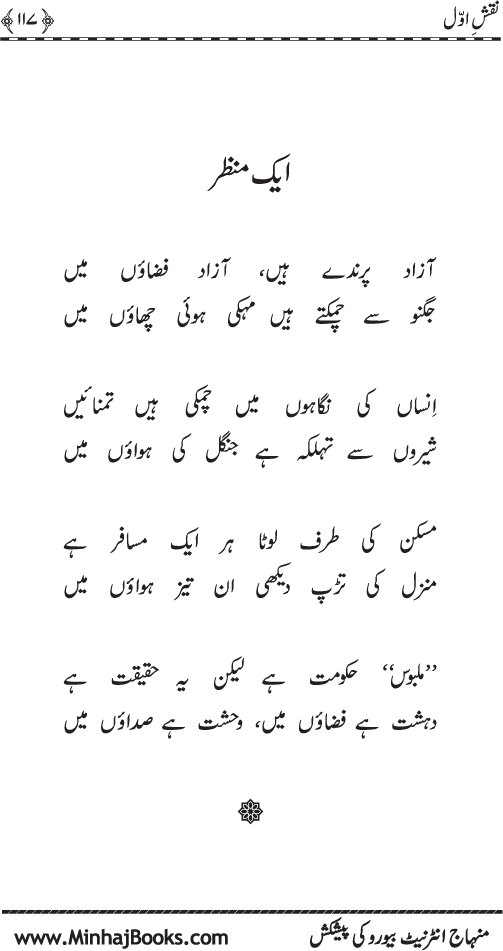 نقشِ اوّل ﴿۱۱۷﴾
ایک منظر
آزاد پرندے ہیں، آزاد فضاؤں میں
جگنو سے چمکتے ہیں مہکی ہوئی چھاؤں میں
اِنساں کی نگاہوں میں چمکی ہیں تمنائیں
شیروں سے تہلکہ ہے جنگل کی ہواؤں میں
مسکن کی طرف لوٹا ہر ایک مسافر ہے
منزل کی تڑپ دیکھی ان تیز ہواؤں میں
’’ملبوس‘‘ حکومت ہے لیکن یہ حقیقت ہے
دہشت ہے فضاؤں میں، وحشت ہے صداؤں میں
منہاج انٹرنیٹ بیورو کی پیشکش www.MinhajBooks.com